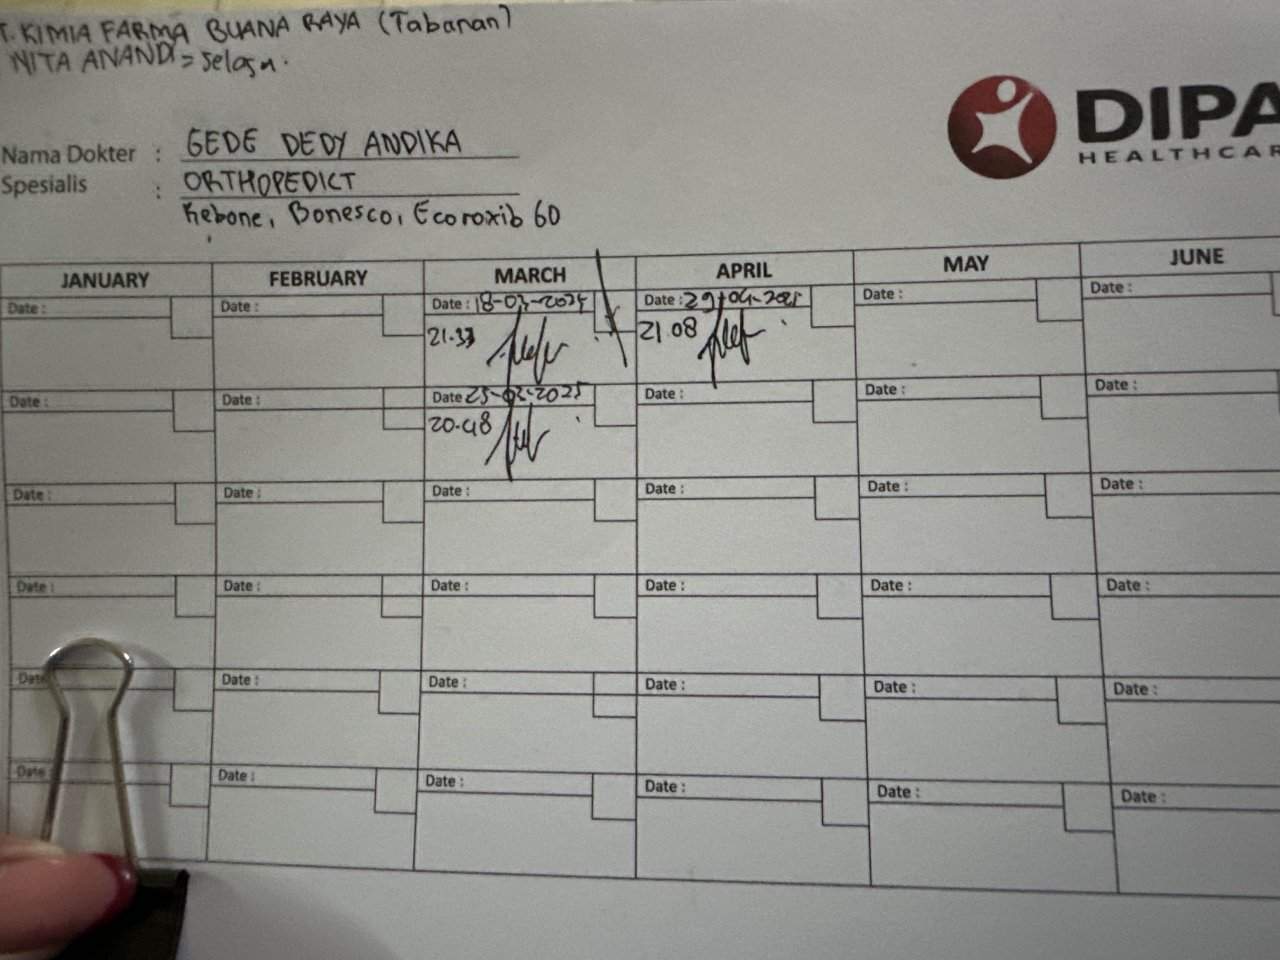 T. KIMIA FARMA BUANA RAYA (Tabanan)
NITA ANANDI = Selasa.
DIPA
HEALTHCAR
Nama Dokter : GEDE DEDY ANDIKA
Spesialis : ORTHOPEDICT
Kebone, Bonesco, Ecoroxib 60
JANUARY FEBRUARY MARCH APRIL MAY JUNE
Date : Date : Date : 18-03-2025 Date : 29-04-2025 Date : Date :
21.33 21.08
Date : Date : Date 25-03-2025 Date : Date : Date :
20.48
Date : Date : Date : Date : Date : Date :
Date : Date : Date : Date : Date : Date :
Date Date : Date : Date : Date : Date :
Date Date : Date : Date : Date : Date :